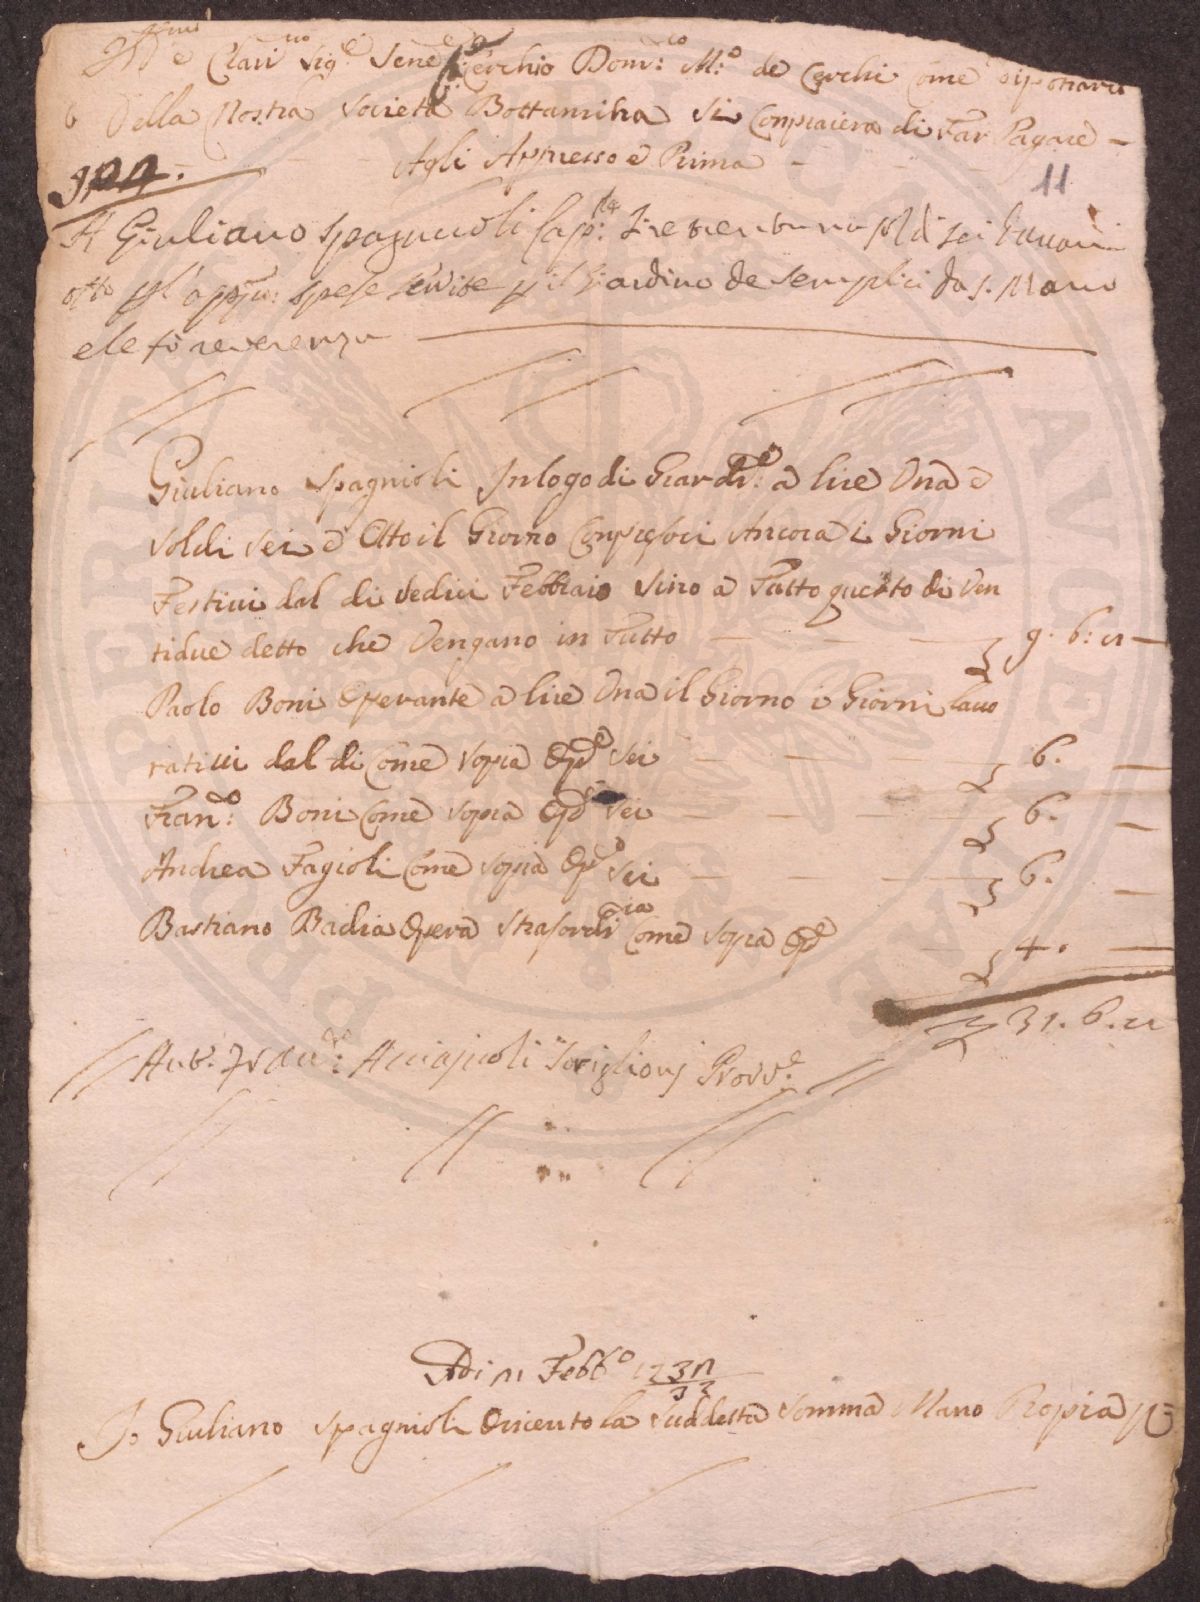 Ill.mo e Clari.mo Sig.e Sen.e Cerchio Dom.co M.o de Cerchi Come Dipositario
6 Della Nostra Società Bottanicha Si Conpiacera di Far Pagare —
Agli Appresso e Prima
11
A Giuliano Spagnioli Cap.le lire trentuna soldi sei danari
otto per gl'appi: spese servite p il Giardino de semplici da S. Marco
e le fo reverenza
Giuliano Spagnioli In logo di Giard.e a lire Una e
Soldi Sei e Otto il Giorno Conpresoci Ancora i Giorni
Festivi dal di Sedici Febbraio Sino a Tutto questo di Ven
tidue detto che Vengano in Tutto — 9. 6: 8 —
Paolo Boni Operante a lire Una il Giorno i Giorni lavo
rativi dal di Come Sopra Op.e Sei — 6. —
Fran.co: Boni Come Sopra Op.e Sei — 6. —
Andrea Fagioli Come Sopra Op.e Sei — 6. —
Bastiano Badia Opera Strasordi.ria Come Sopra Op.e 4. —
31. 6. 8
Ant. Fran.co: Acciajuoli Toriglioni Provv.e
Adi 22 Febb.o 1732/33
Io Giuliano Spagnioli O ricevuto la Suddetta Somma Mano Propia